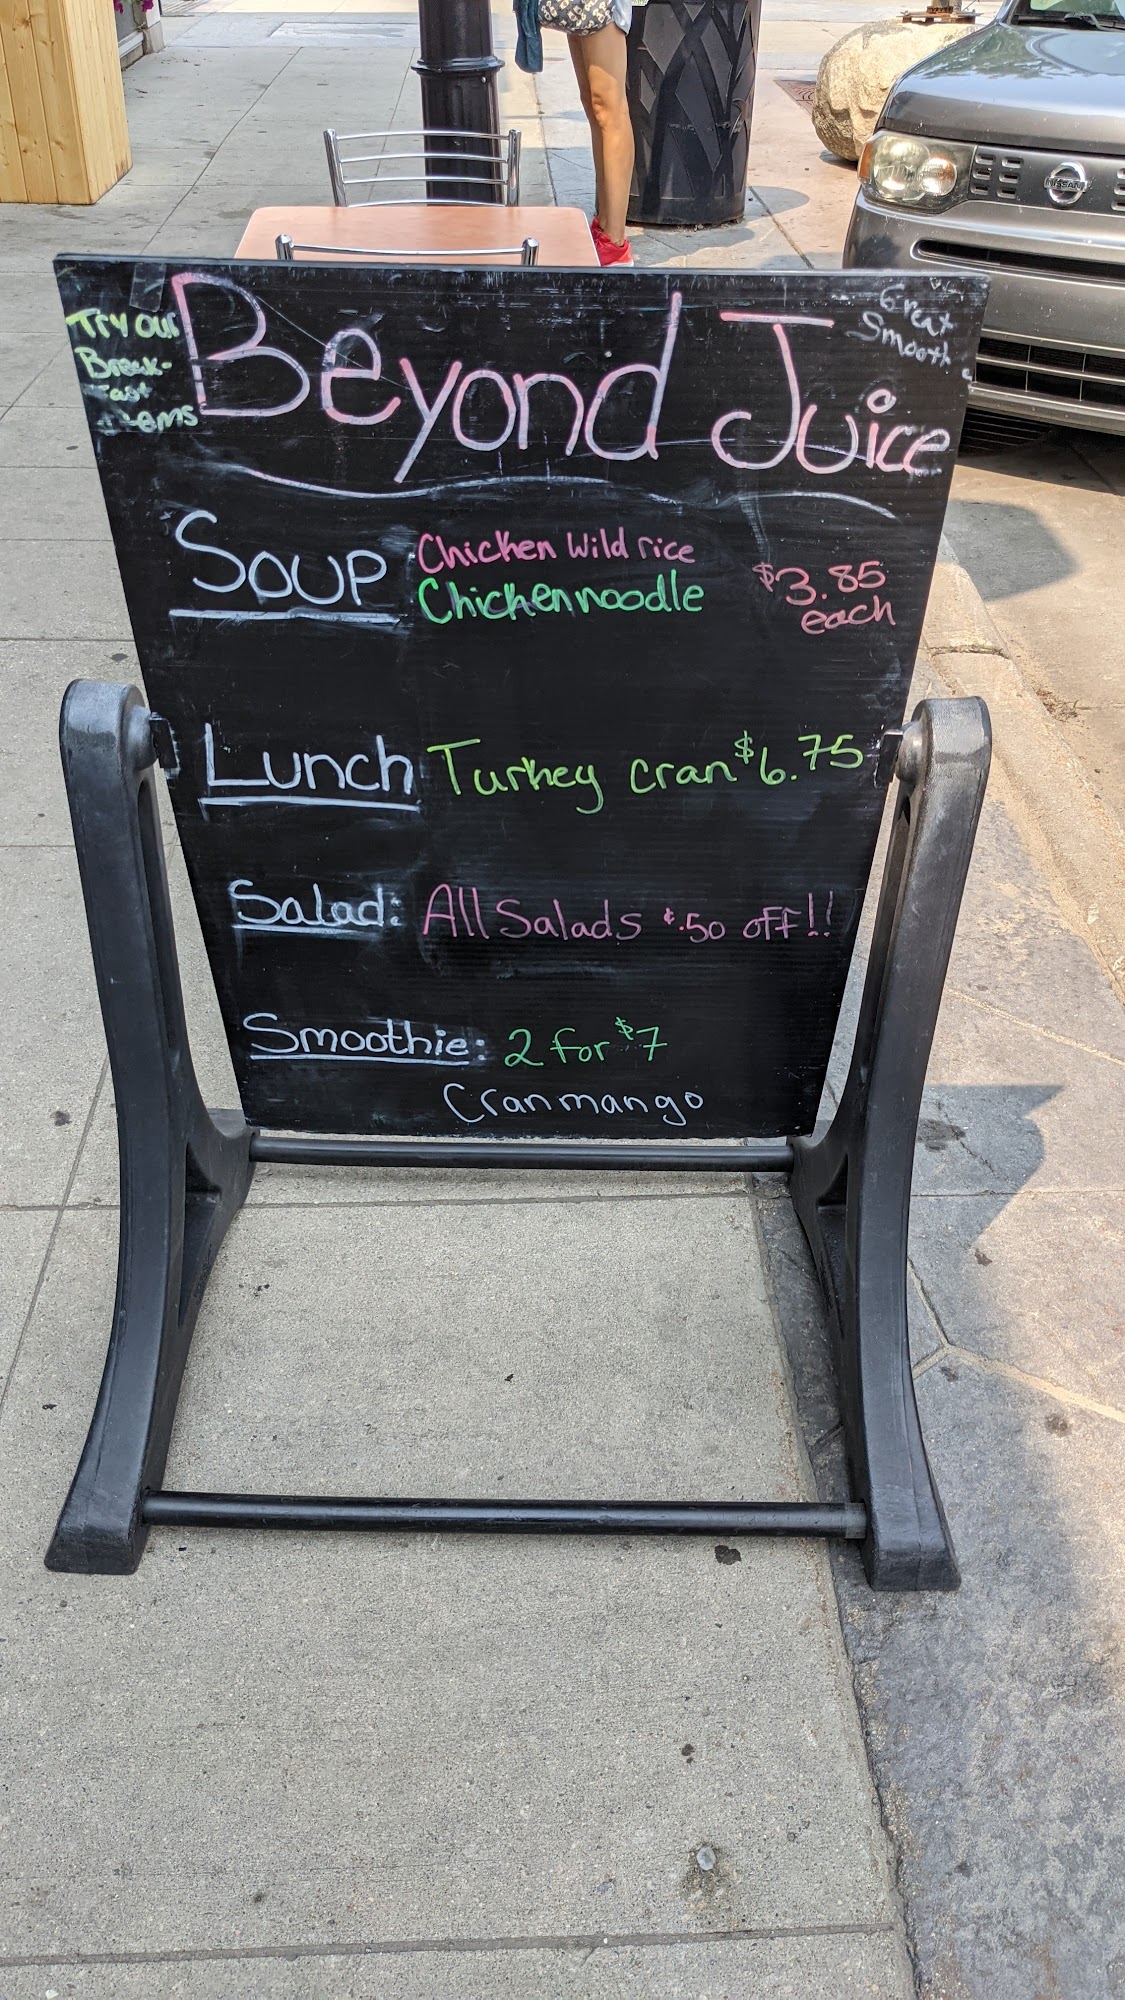 Try our
Break-
fast
Items
Beyond Juice
Great
Smooth
Soup
Chicken Wild rice
Chicken noodle
$3.85
each
Lunch Turkey cran $6.75
Salad: All Salads $.50 off!!
Smoothie: 2 for $7
Cranmango
NISSAN